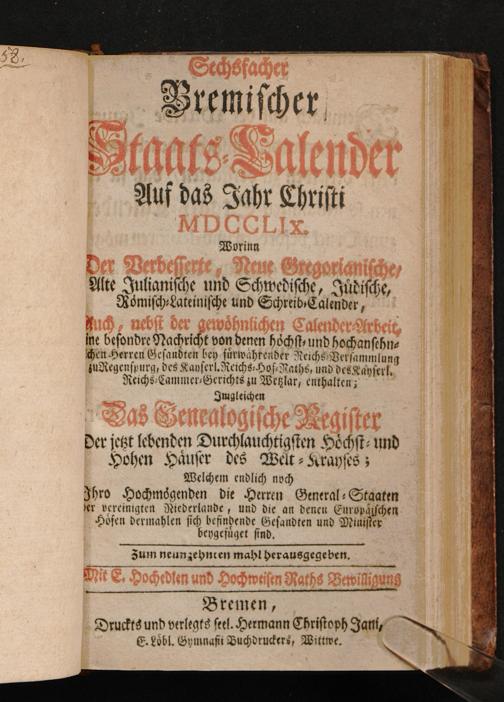 58.
Sechsfacher
Bremischer
Staats-Calender
Auf das Jahr Christi
MDCCLIX.
Worinn
Der Verbesserte, Neue Gregorianische,
Alte Julianische und Schwedische, Jüdische,
Römisch-Lateinische und Schreib-Calender,
Auch, nebst der gewöhnlichen Calender-Arbeit,
ine besondre Nachricht von denen höchst- und hochansehn-
ichen Herren Gesandten bey fürwährender Reichs-Versammlung
zu Regenspurg, des Kayserl. Reichs-Hof-Raths, und des Kayserl.
Reichs-Cammer-Gerichts zu Wetzlar, enthalten;
Imgleichen
Das Genealogische Register
Der jetzt lebenden Durchlauchtigsten Höchst- und
Hohen Häuser des Welt-Krayses;
Welchem endlich noch
Ihro Hochmögenden die Herren General-Staaten
der vereinigten Niederlande, und die an denen Europäischen
Höfen dermahlen sich befindende Gesandten und Minister
beygefüget sind.
Zum neunzehnten mahl herausgegeben.
Mit E. Hochedlen und Hochweisen Raths Bewilligung
Bremen,
Druckts und verlegts seel. Hermann Christoph Jani,
E. Löbl. Gymnasii Buchdruckers, Wittwe.